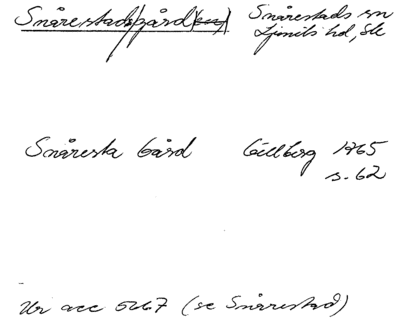 Snårestads/gård/ Snårestads sn
Ljunits hd, Sk
Snåresta Gård Gillberg 1765
s. 62
Ur acc 5467 (se Snårestad)